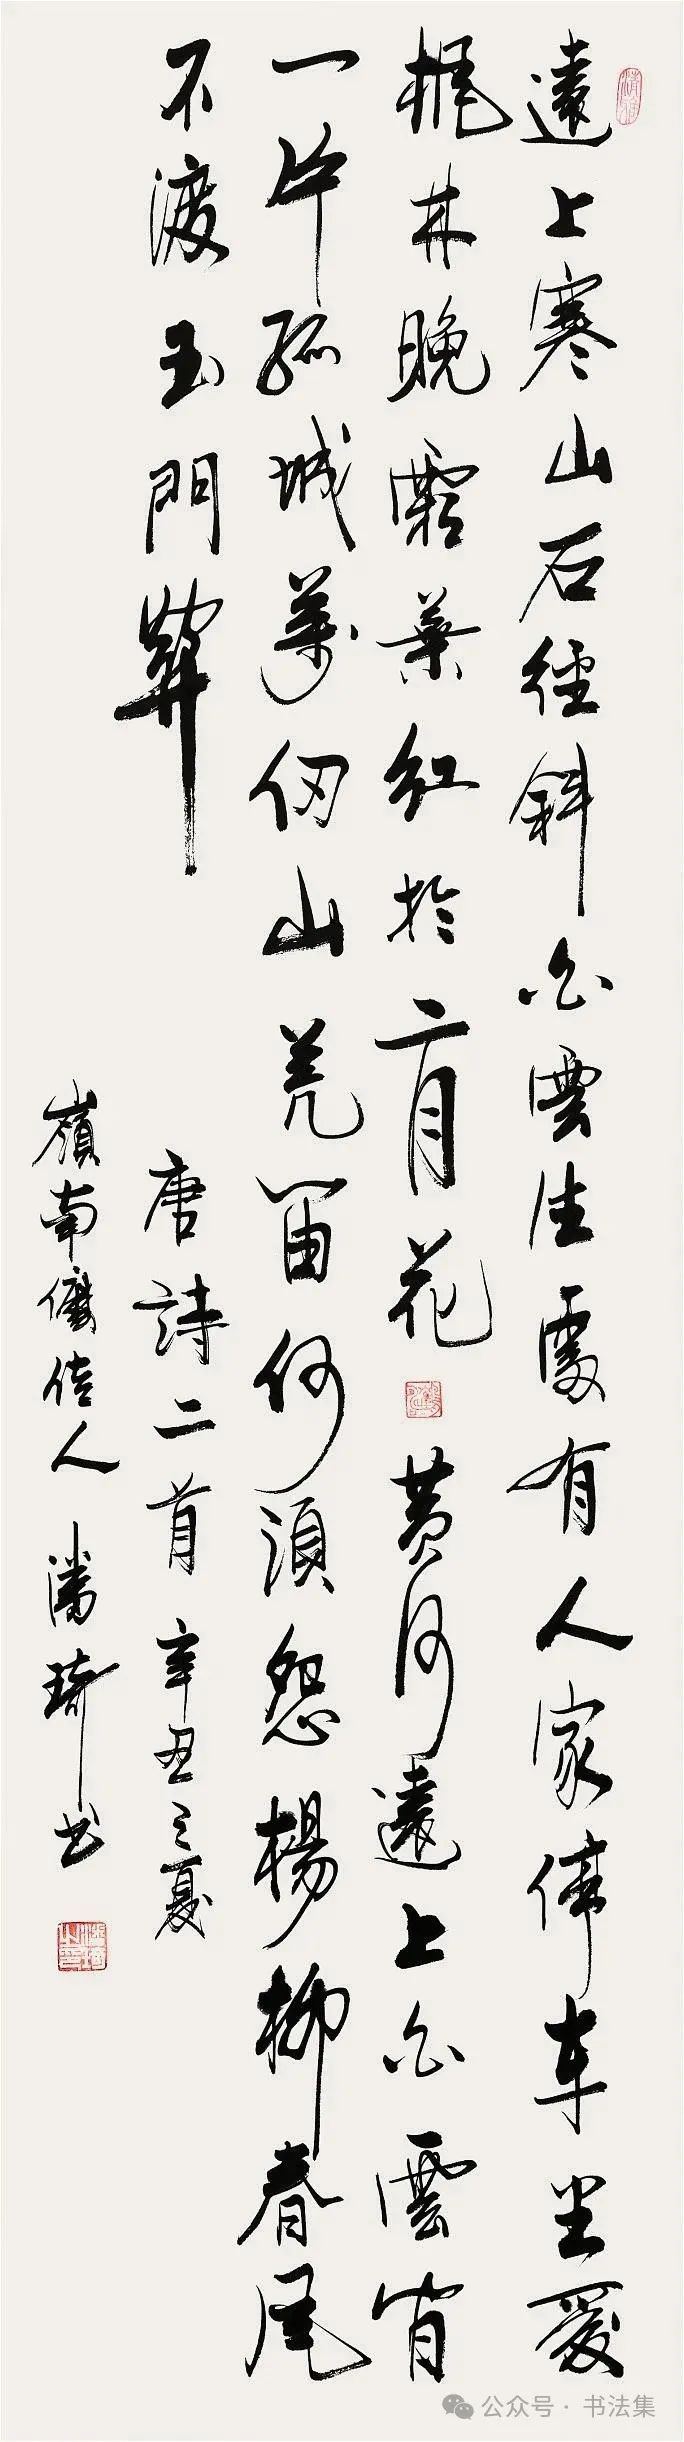 遠上寒山石徑斜白雲生處有人家停車坐愛
楓林晚霜葉紅於二月花 黄河遠上白雲間
一片孤城萬仞山羌笛何須怨楊柳春風
不渡玉門關
唐詩二首 辛丑之夏
嶺南人 潘琦书
公众号 · 书法集